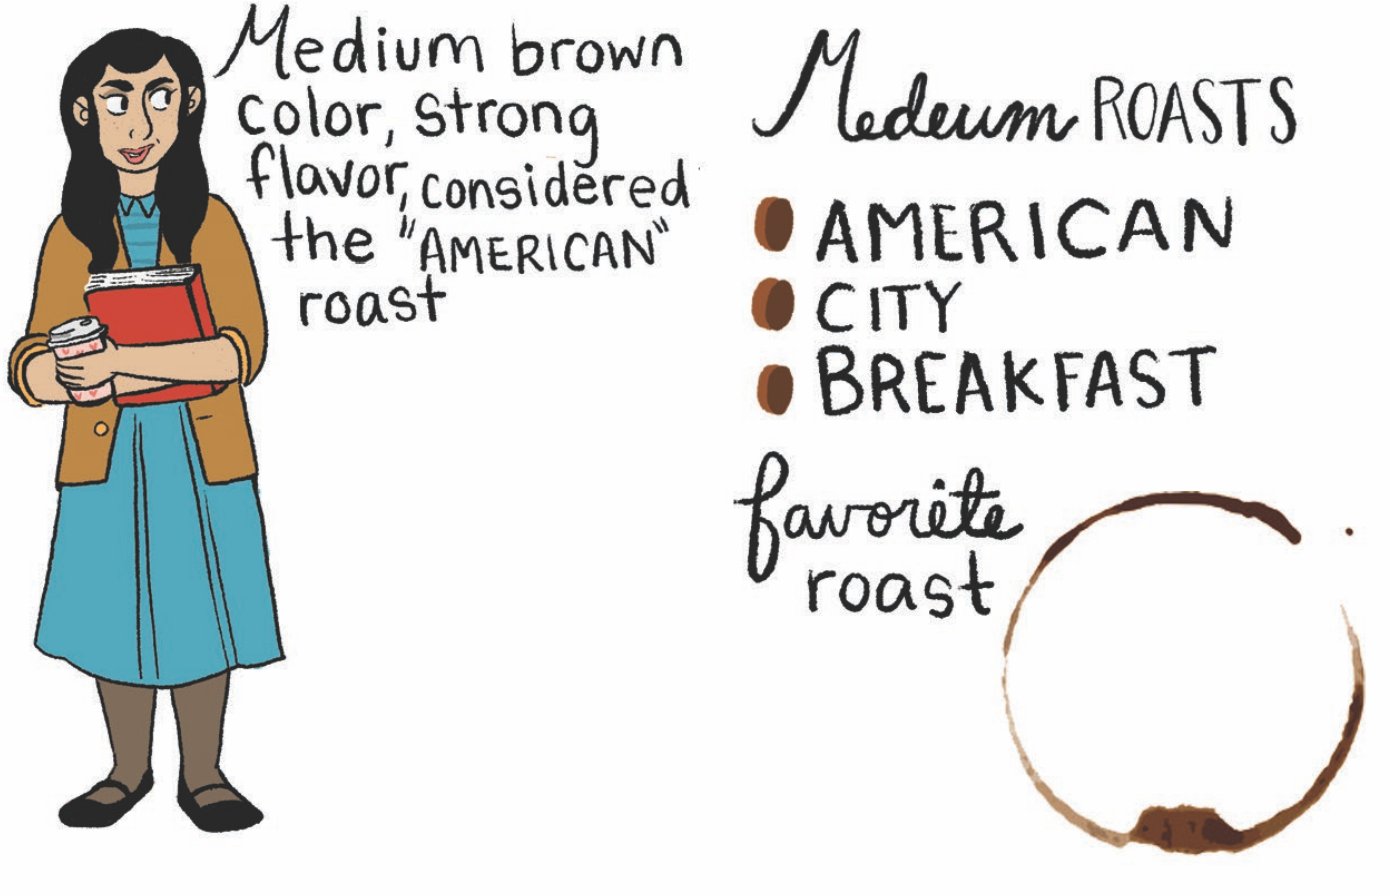 Medium brown
color, strong
flavor, considered
the "AMERICAN"
roast
Medeum ROASTS
AMERICAN
CITY
BREAKFAST
favorite
roast